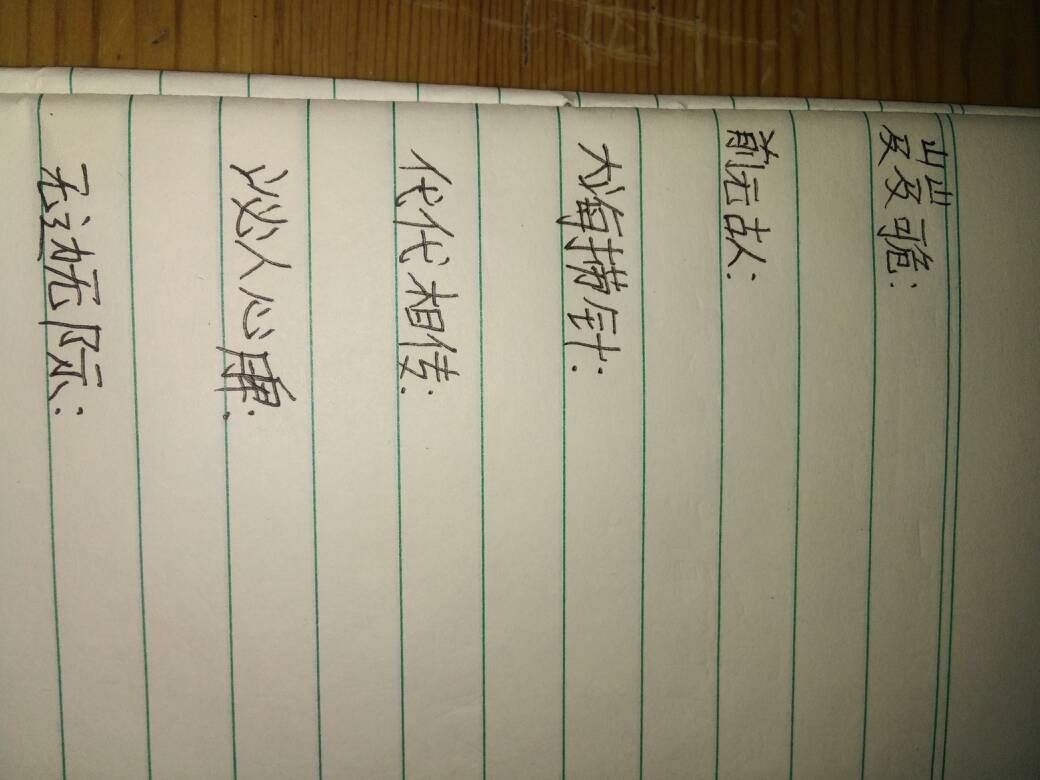 岌岌可危:
前无古人:
大海捞针:
代代相传:
沁人心脾:
无边无际: